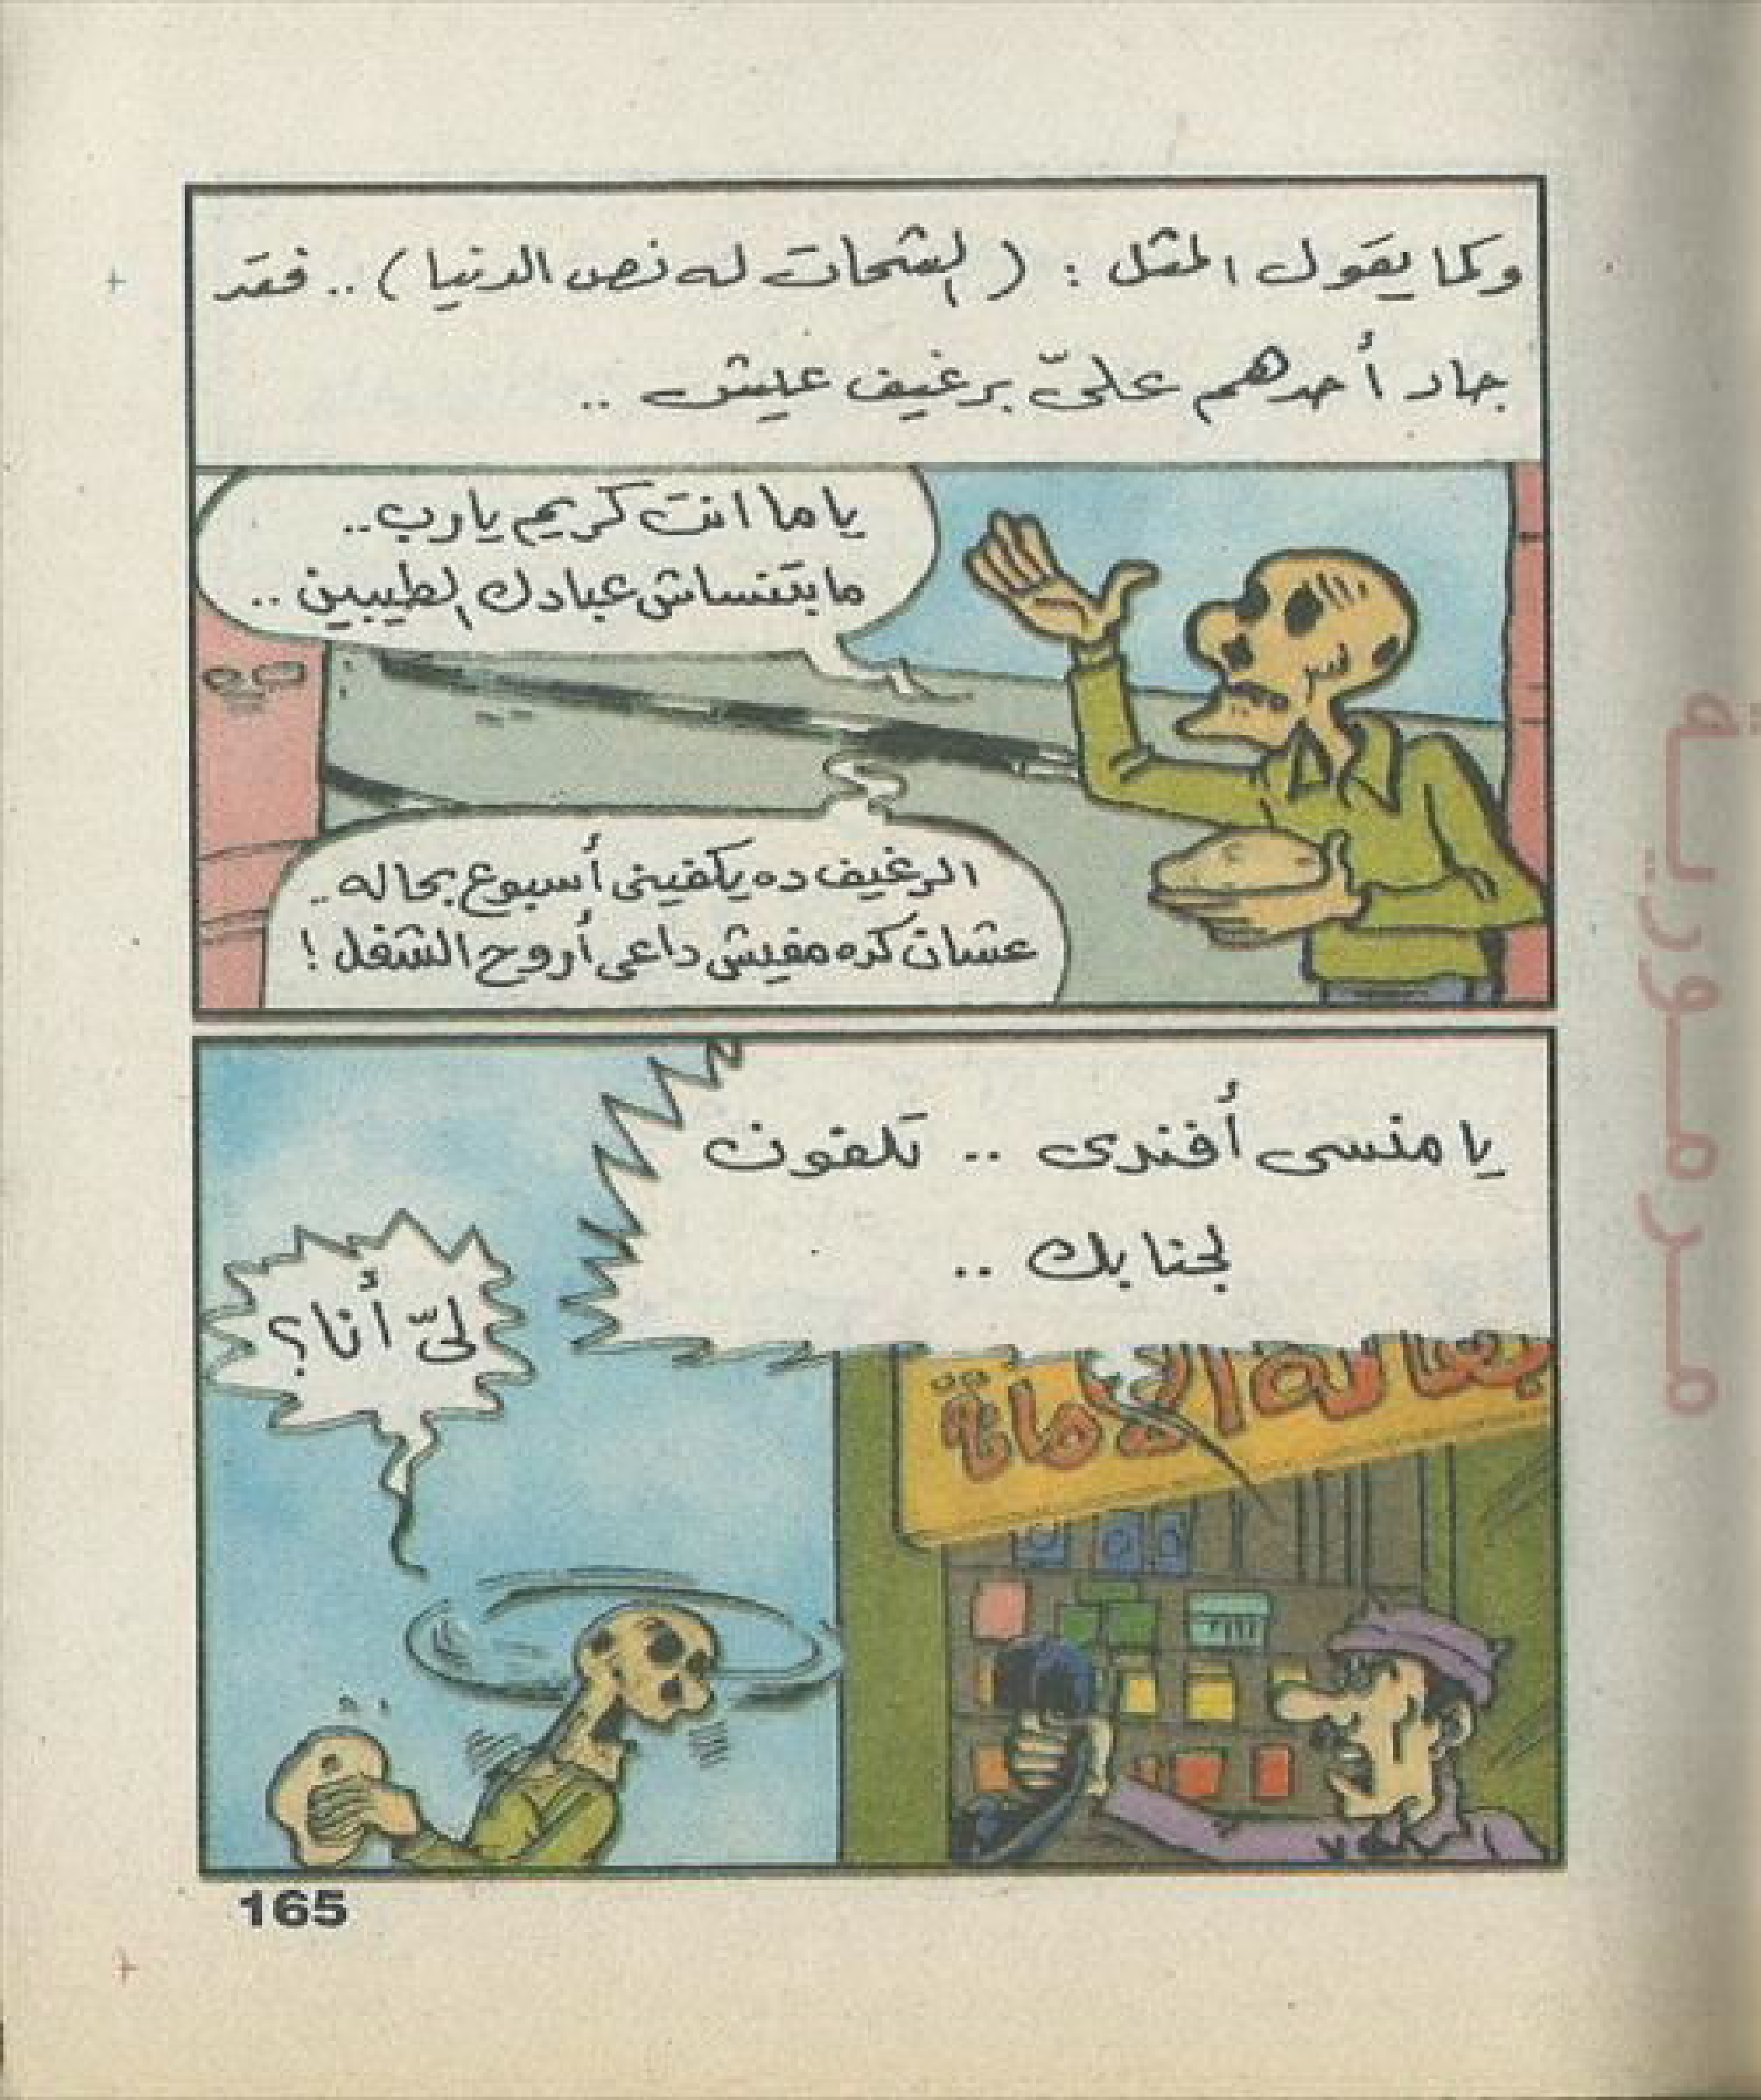 وكما يقول المثل : (الشحات له نص الدنيا) .. فقد
جاد أحدهم علىّ برغيف عيش ..
ياما انت كريم يارب..
مابتنساش عبادك الطيبين ..
الرغيف ده يكفينى أسبوع بحاله ..
عشان كده مفيش داعى أروح الشغل !
يا منسى أفندى .. تلفون
لجنابك ..
لىّ أنا؟
بقالة الأمانة
165
مرمورية